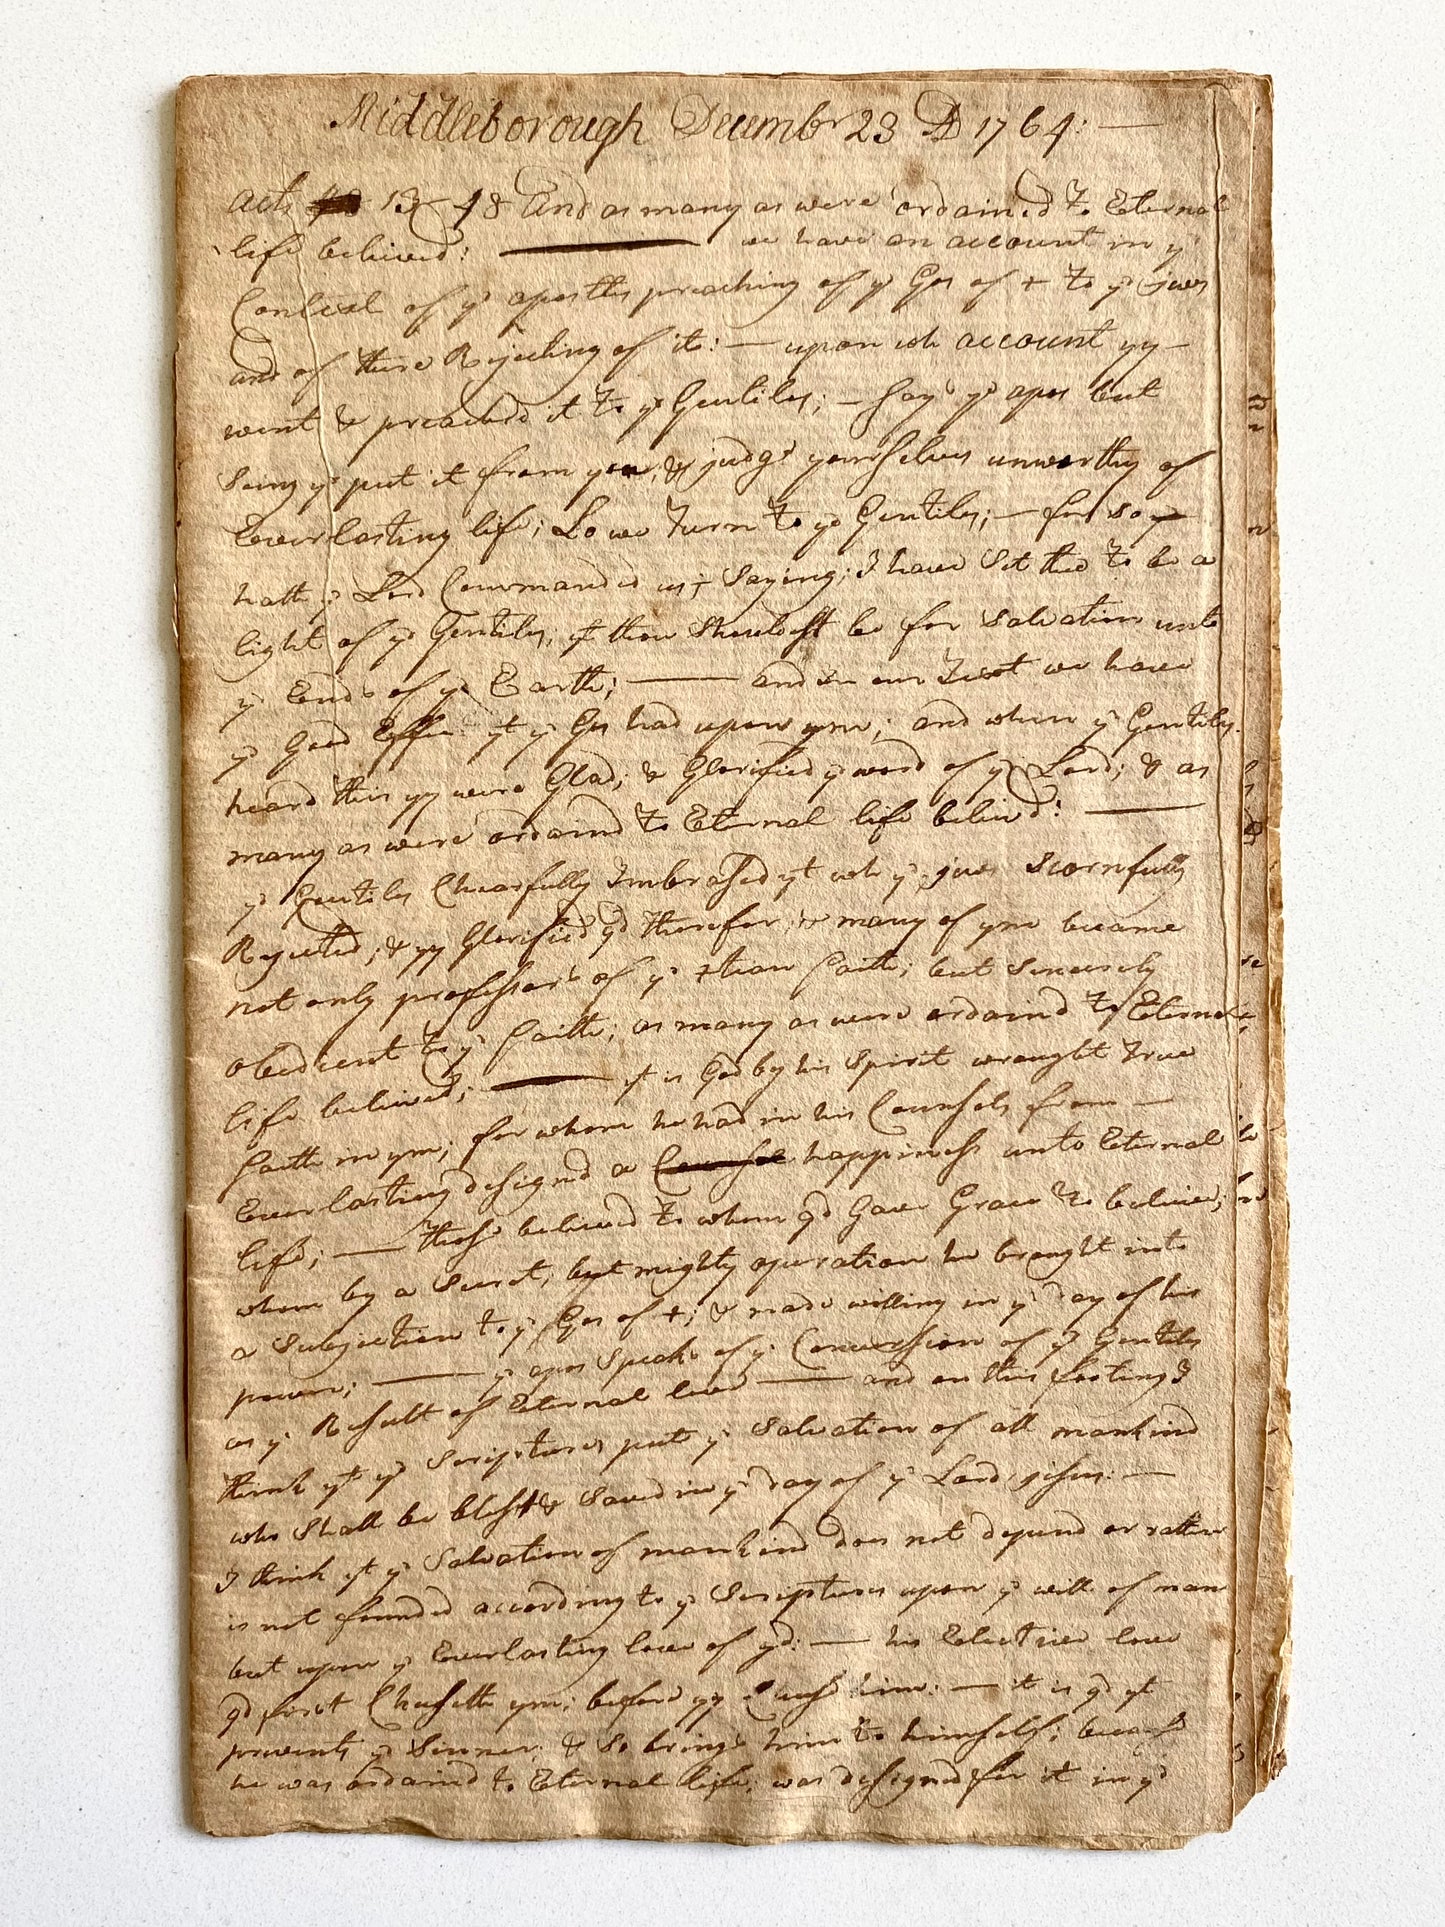 Middleborough Decembr 23 AD 1764:—
Acts 13-48 And as many as were ordained to Eternal
life believed: — we have an account in ye
Context of ye apostles preaching of ye Gos of + to ye jews
and of there Rejecting of it: — upon wh account yy —
went & preached it to ye Gentiles; — says ye apos but
Seing ye put it from you; & judge yourselves unworthy of
Everlasting life; Lo we Turn to ye Gentiles; — for so
hath ye Lord Commanded us; Saying; I have Set thee to be a
light of ye Gentiles, yt thou Shouldest be for Salvation unto
ye Ends of ye Earth; — and in our Text we have
ye Good Effect yt ye Gos had upon ym; and when ye Gentiles
heard this yy were Glad; & Glorified ye word of ye Lord; & as
many as were ordaind to Eternal life believd: —
ye Gentiles Chearfully Imbrased yt wh ye jues Scornfully
Rejected; & yy Glorified gd therefor; & many of ym became
not only professors of ye +tian faith; but Sincerely
obedient to ye faith; as many as were ordaind to Eternal
life believed; — it is God by his Spirit wrought True
faith in ym; for whom he had in his Counsels from —
Everlasting designd a happiness unto Eternal
life; — those believed to whom gd Gave Grace to believe;
whom by a Secret, but mighty operation he brought into
a Subjection to ye Gos of +; & made willing in ye day of his
power; — ye apos Speaks of ye Conversion of ye Gentiles
as ye Result of Eternal love — and on this footing I
think yt ye Scriptures puts ye Salvation of all mankind
who Shall be blest & Saved in ye day of ye Lord jesus: —
I think yt ye Salvation of mankind does not depend or rather
is not founded according to ye Scriptures upon ye will of man
but upon ye Everlasting love of gd: — his Elective love
gd first Chuseth ym; before yy Chuse him: — it is gd yt
prevents ye Sinner; & So brings him to himself; because
he was ordaind to Eternal life; was designed for it in ye